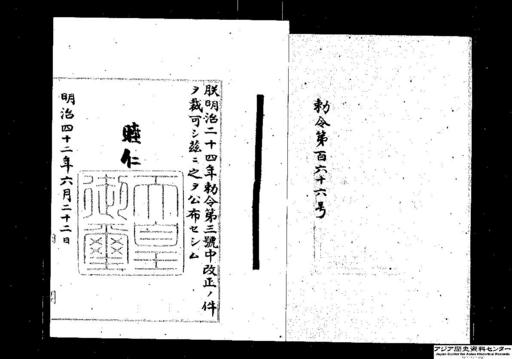 勅令第百六十六号
朕明治二十四年勅令第三號中改正ノ件
ヲ裁可シ茲ニ之ヲ公布セシム
睦仁
天皇御璽
明治四十二年六月二十二日
アジア歴史資料センター
Japan Center for Asian Historical Records